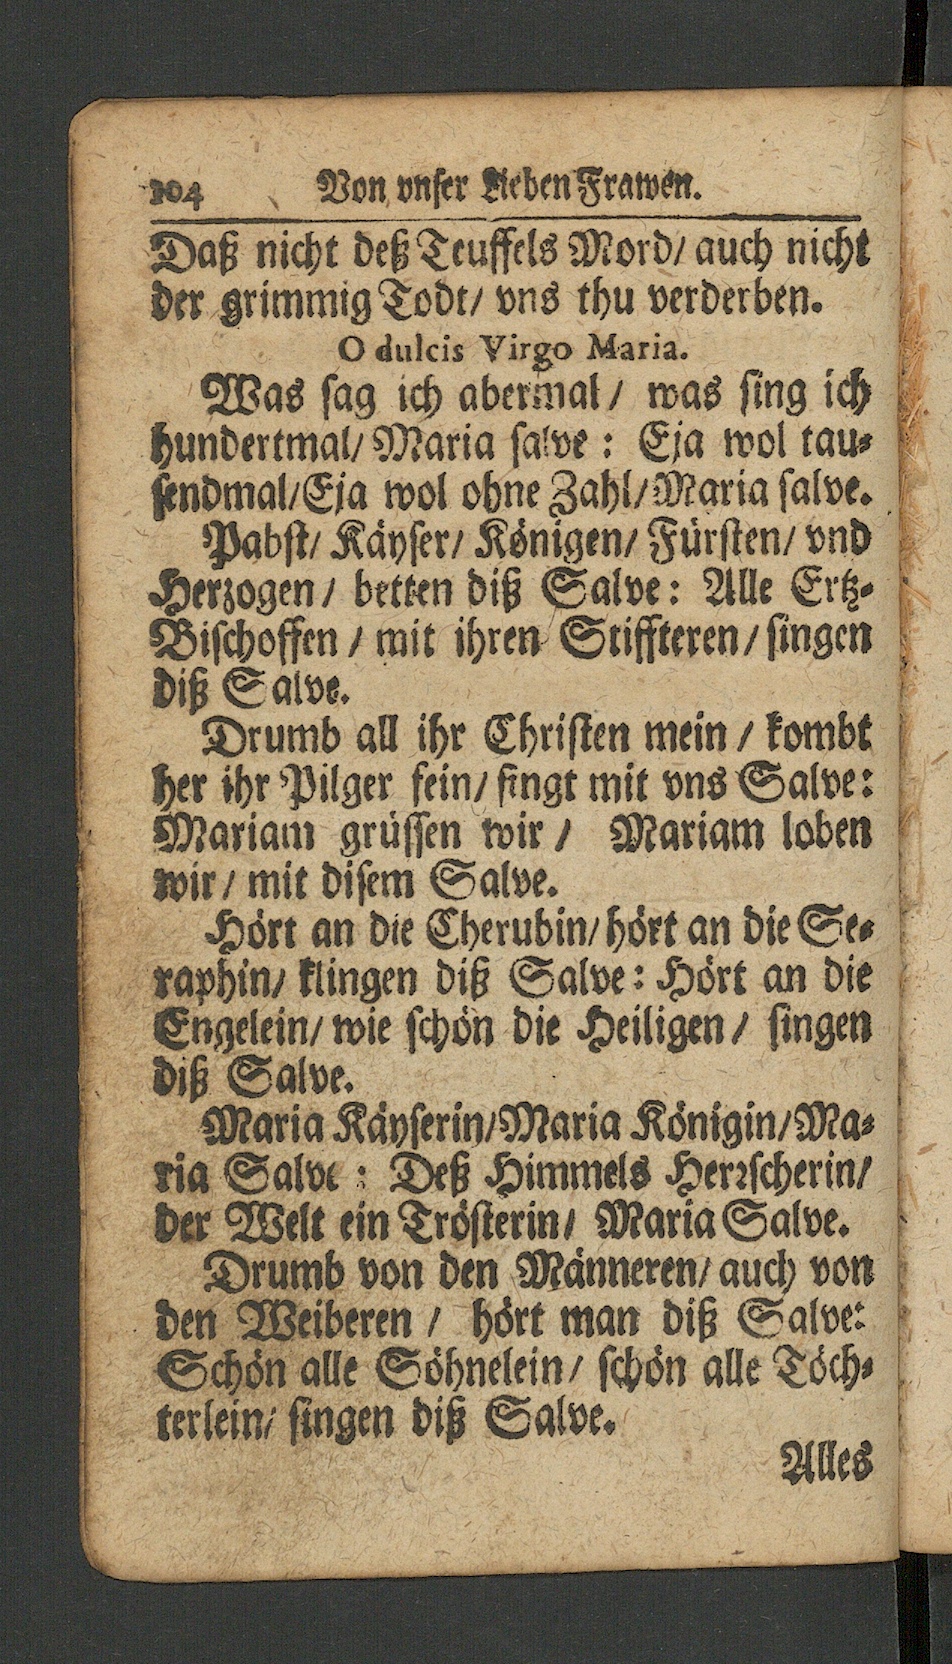 104 Von vnser Lieben Frawen.
Daß nicht deß Teuffels Mord/ auch nicht
der grimmig Todt/ vns thu verderben.
O dulcis Virgo Maria.
Was sag ich abermal/ was sing ich
hundertmal/ Maria salve: Eja wol tau-
sendmal/ Eja wol ohne Zahl/ Maria salve.
Pabst/ Käyser/ Königen/ Fürsten/ vnd
Herzogen/ betten diß Salve: Alle Ertz-
Bischoffen/ mit ihren Stiffteren/ singen
diß Salve.
Drumb all ihr Christen mein/ kombt
her ihr Pilger fein/ singt mit vns Salve:
Mariam grüssen wir/ Mariam loben
wir/ mit disem Salve.
Hört an die Cherubin/ hört an die Se-
raphin/ klingen diß Salve: Hört an die
Engelein/ wie schön die Heiligen/ singen
diß Salve.
Maria Käyserin/ Maria Königin/ Ma-
ria Salve: Deß Himmels Herrscherin/
der Welt ein Trösterin/ Maria Salve.
Drumb von den Männeren/ auch von
den Weiberen/ hört man diß Salve:
Schön alle Söhnelein/ schön alle Töch-
terlein/ singen diß Salve.
Alles